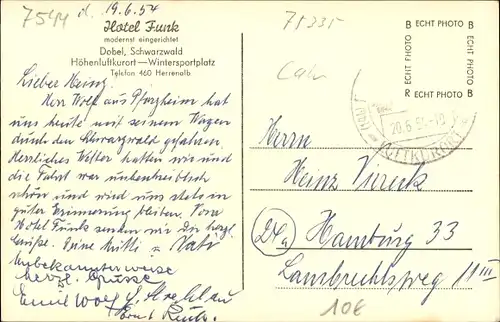 7544 d. 19.6.54
Hotel Funk
modernst eingerichtet
Dobel, Schwarzwald
Höhenluftkurort—Wintersportplatz
Telefon 460 Herrenalb
Lieber Heinz.
Herr Wolf aus Pforzheim hat
uns heute mit seinem Wagen
durch den Schwarzwald gefahren.
Herrliches Wetter hatten wir und
die Fahrt war unbeschreiblich
schön und wird uns stets in
guter Erinnerung bleiben. Vom
Hotel Funk senden wir Dir herzl.
Grüße. Deine Mutti u. Vati
Unbekannterweise
herzl. Grüsse
Emil Wolf
Ernst
75335
Calw
B ECHT PHOTO B
ECHT PHOTO
ECHT PHOTO
R ECHT PHOTO B
20.6.54
LUFTKURORT
Herrn
Heinz
24a Hamburg 33
Lambrechtsweg 11 III
10€